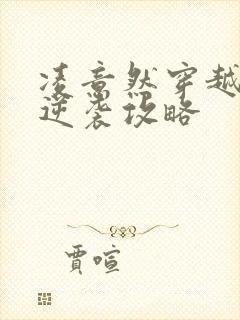 凌意然穿越
逆袭攻略
贾喧